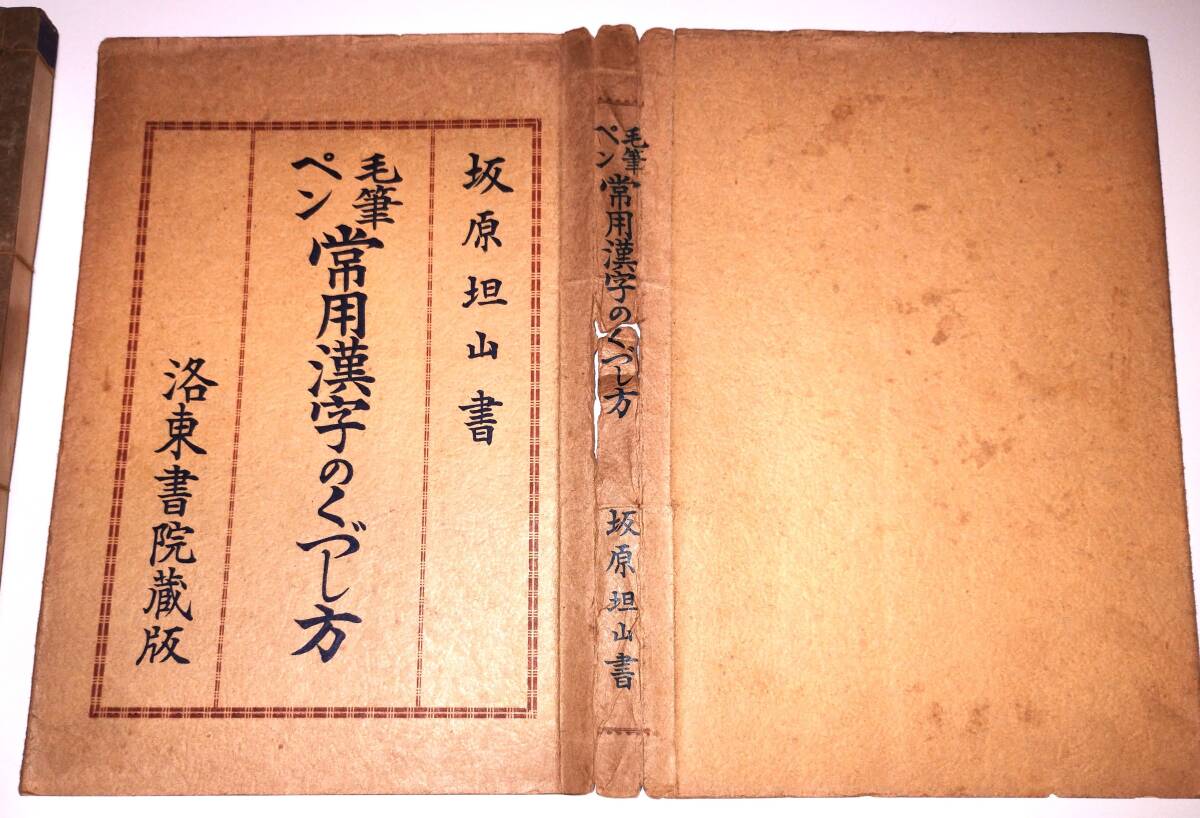 坂原坦山書
毛筆
ペン
常用漢字のくづし方
洛東書院蔵版
毛筆
ペン
常用漢字のくづし方
坂原坦山書